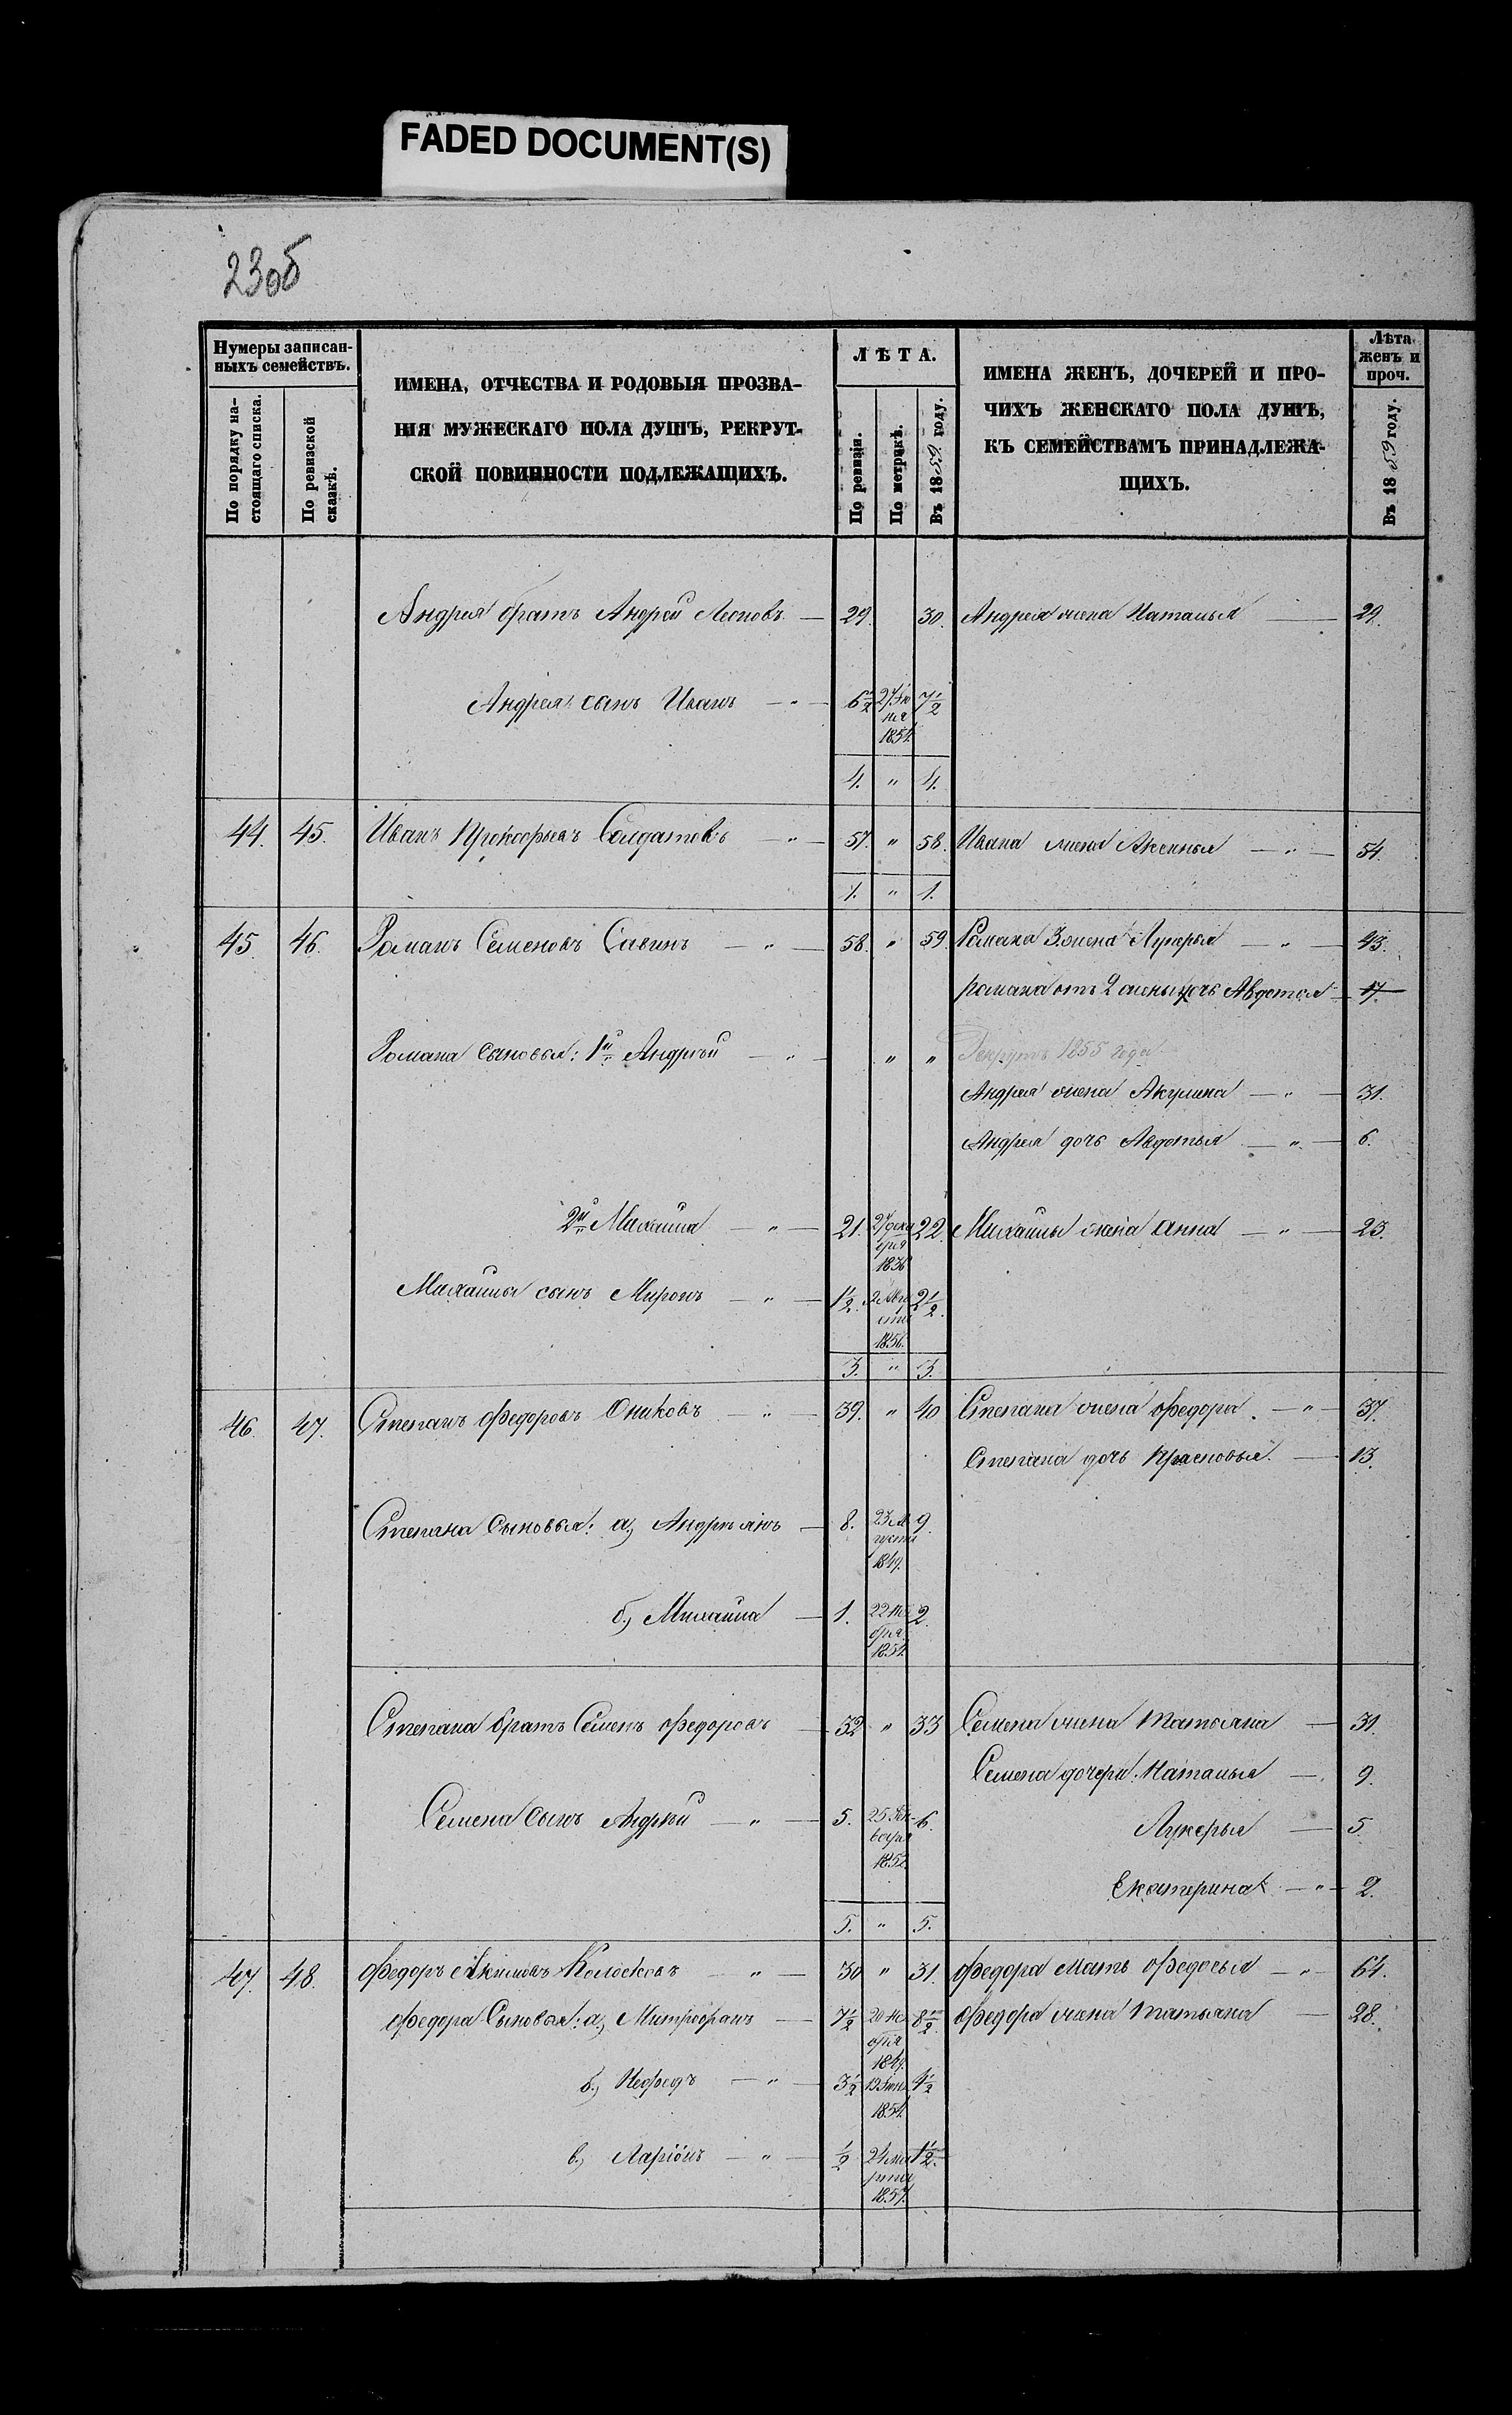 FADED DOCUMENT(S)
23об
Нумеры записан-
ныхъ семействъ.
По порядку на-
стоящаго списка.
По ревизской
сказкѣ.
ИМЕНА, ОТЧЕСТВА И РОДОВЫЯ ПРОЗВА-
НІЯ МУЖЕСКАГО ПОЛА ДУШЪ, РЕКРУТ-
СКОЙ ПОВИННОСТИ ПОДЛЕЖАЩИХЪ.
ЛѢТА.
По ревизіи.
По метрикѣ.
Въ 1859 году.
ИМЕНА ЖЕНЪ, ДОЧЕРЕЙ И ПРО-
ЧИХЪ ЖЕНСКАГО ПОЛА ДУШЪ,
КЪ СЕМЕЙСТВАМЪ ПРИНАДЛЕЖА-
ЩИХЪ.
Лѣта
женъ и
проч.
Въ 1859 году.
Андрея братъ Андрей — 29. 30. Андрея жена Наталья — 29.
Андрея сынъ Иванъ — " — 6 1/2 7 1/2
1851.
4. " 4.
44. 45. Иванъ Прокофьевъ Солдатовъ — " — 57. " 58. Ивана жена Аксинья — " — 54.
1. " 1.
45. 46. Романъ Семеновъ Савинъ — " — 58. " 59. Романа 3 жена Лукерья — " — 43.
Романа отъ 2 жены дочь Авдотья — 17.
Романа сыновья: 1й Андрѣй — " — " " Рекрутъ 1855 года
Андрея жена Акулина — " — 31.
Андрея дочь Авдотья — " — 6.
2й Михайла — " — 21. 27 дека
бря
1836 22. Михайлы жена Анна — " — 23.
Михайлы сынъ Миронъ — " — 1 1/2. 2 1/2.
1856.
3. " 3.
46. 47. Степанъ Федоровъ Ониковъ — " — 39. " 40 Степана жена Федора — " — 37.
Степана дочь Прасковья. — 13.
Степана сыновья: а) Андреянъ — 8. 23 ав
густа
1849. 9.
б.) Михайла — 1. 2.
Степана братъ Семенъ Федоровъ — 32 " 33 Семена жена Татьяна — 31.
Семена дочери: Наталья — 9.
Семена сынъ Андрѣй — " — 5. 1852. 6.
Лукерья — 5.
Екатерина — " — 2.
5. " 5.
47. 48. Федоръ Акимовъ Колосковъ — " — 30 " 31. Федора мать Федосья — " — 61.
Федора сыновья: а.) Митрофанъ — 7 1/2 20 но
ября
1849. 8 1/2. Федора жена Татьяна — 28.
б.) Нефедъ — " — 3 1/2 4 1/2
1854.
в.) Ларіонъ — " — 1/2 24 ма
рта
1857. 1 1/2.